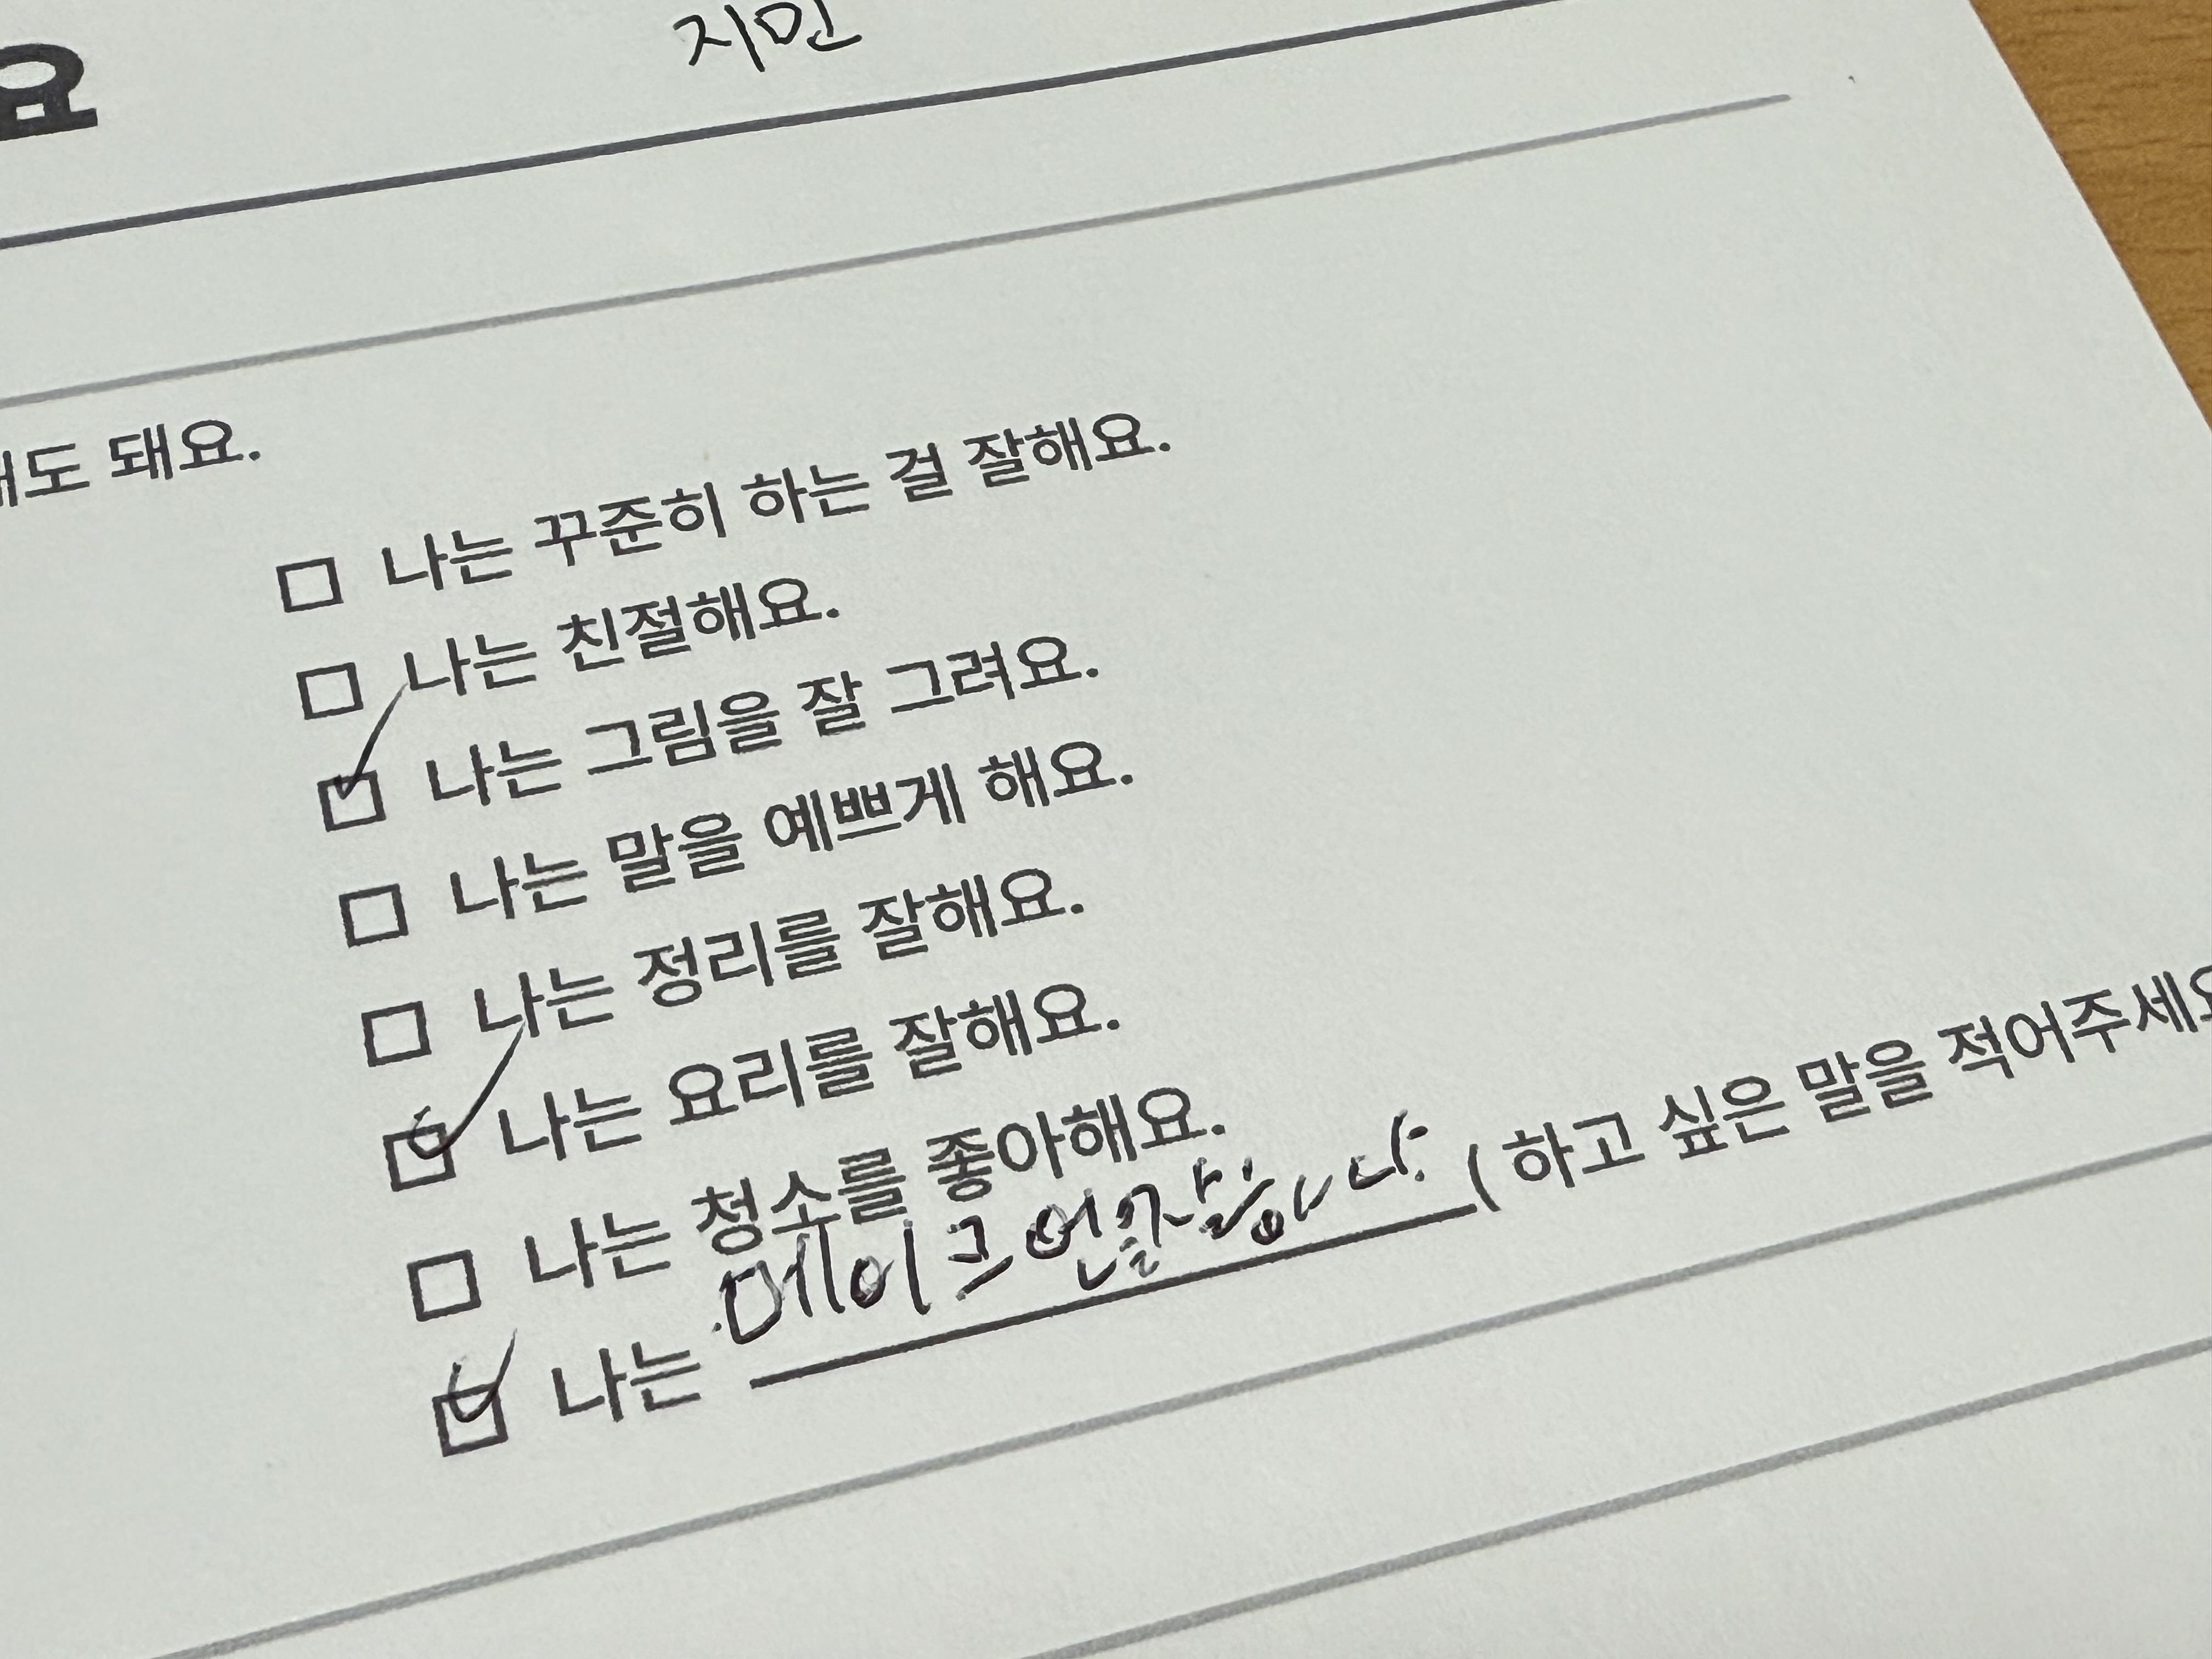 요
지민
도 돼요.
나는 꾸준히 하는 걸 잘해요.
나는 친절해요.
나는 그림을 잘 그려요.
나는 말을 예쁘게 해요.
나는 정리를 잘해요.
나는 요리를 잘해요.
나는 청소를 좋아해요.
나는 (하고 싶은 말을 적어주세요